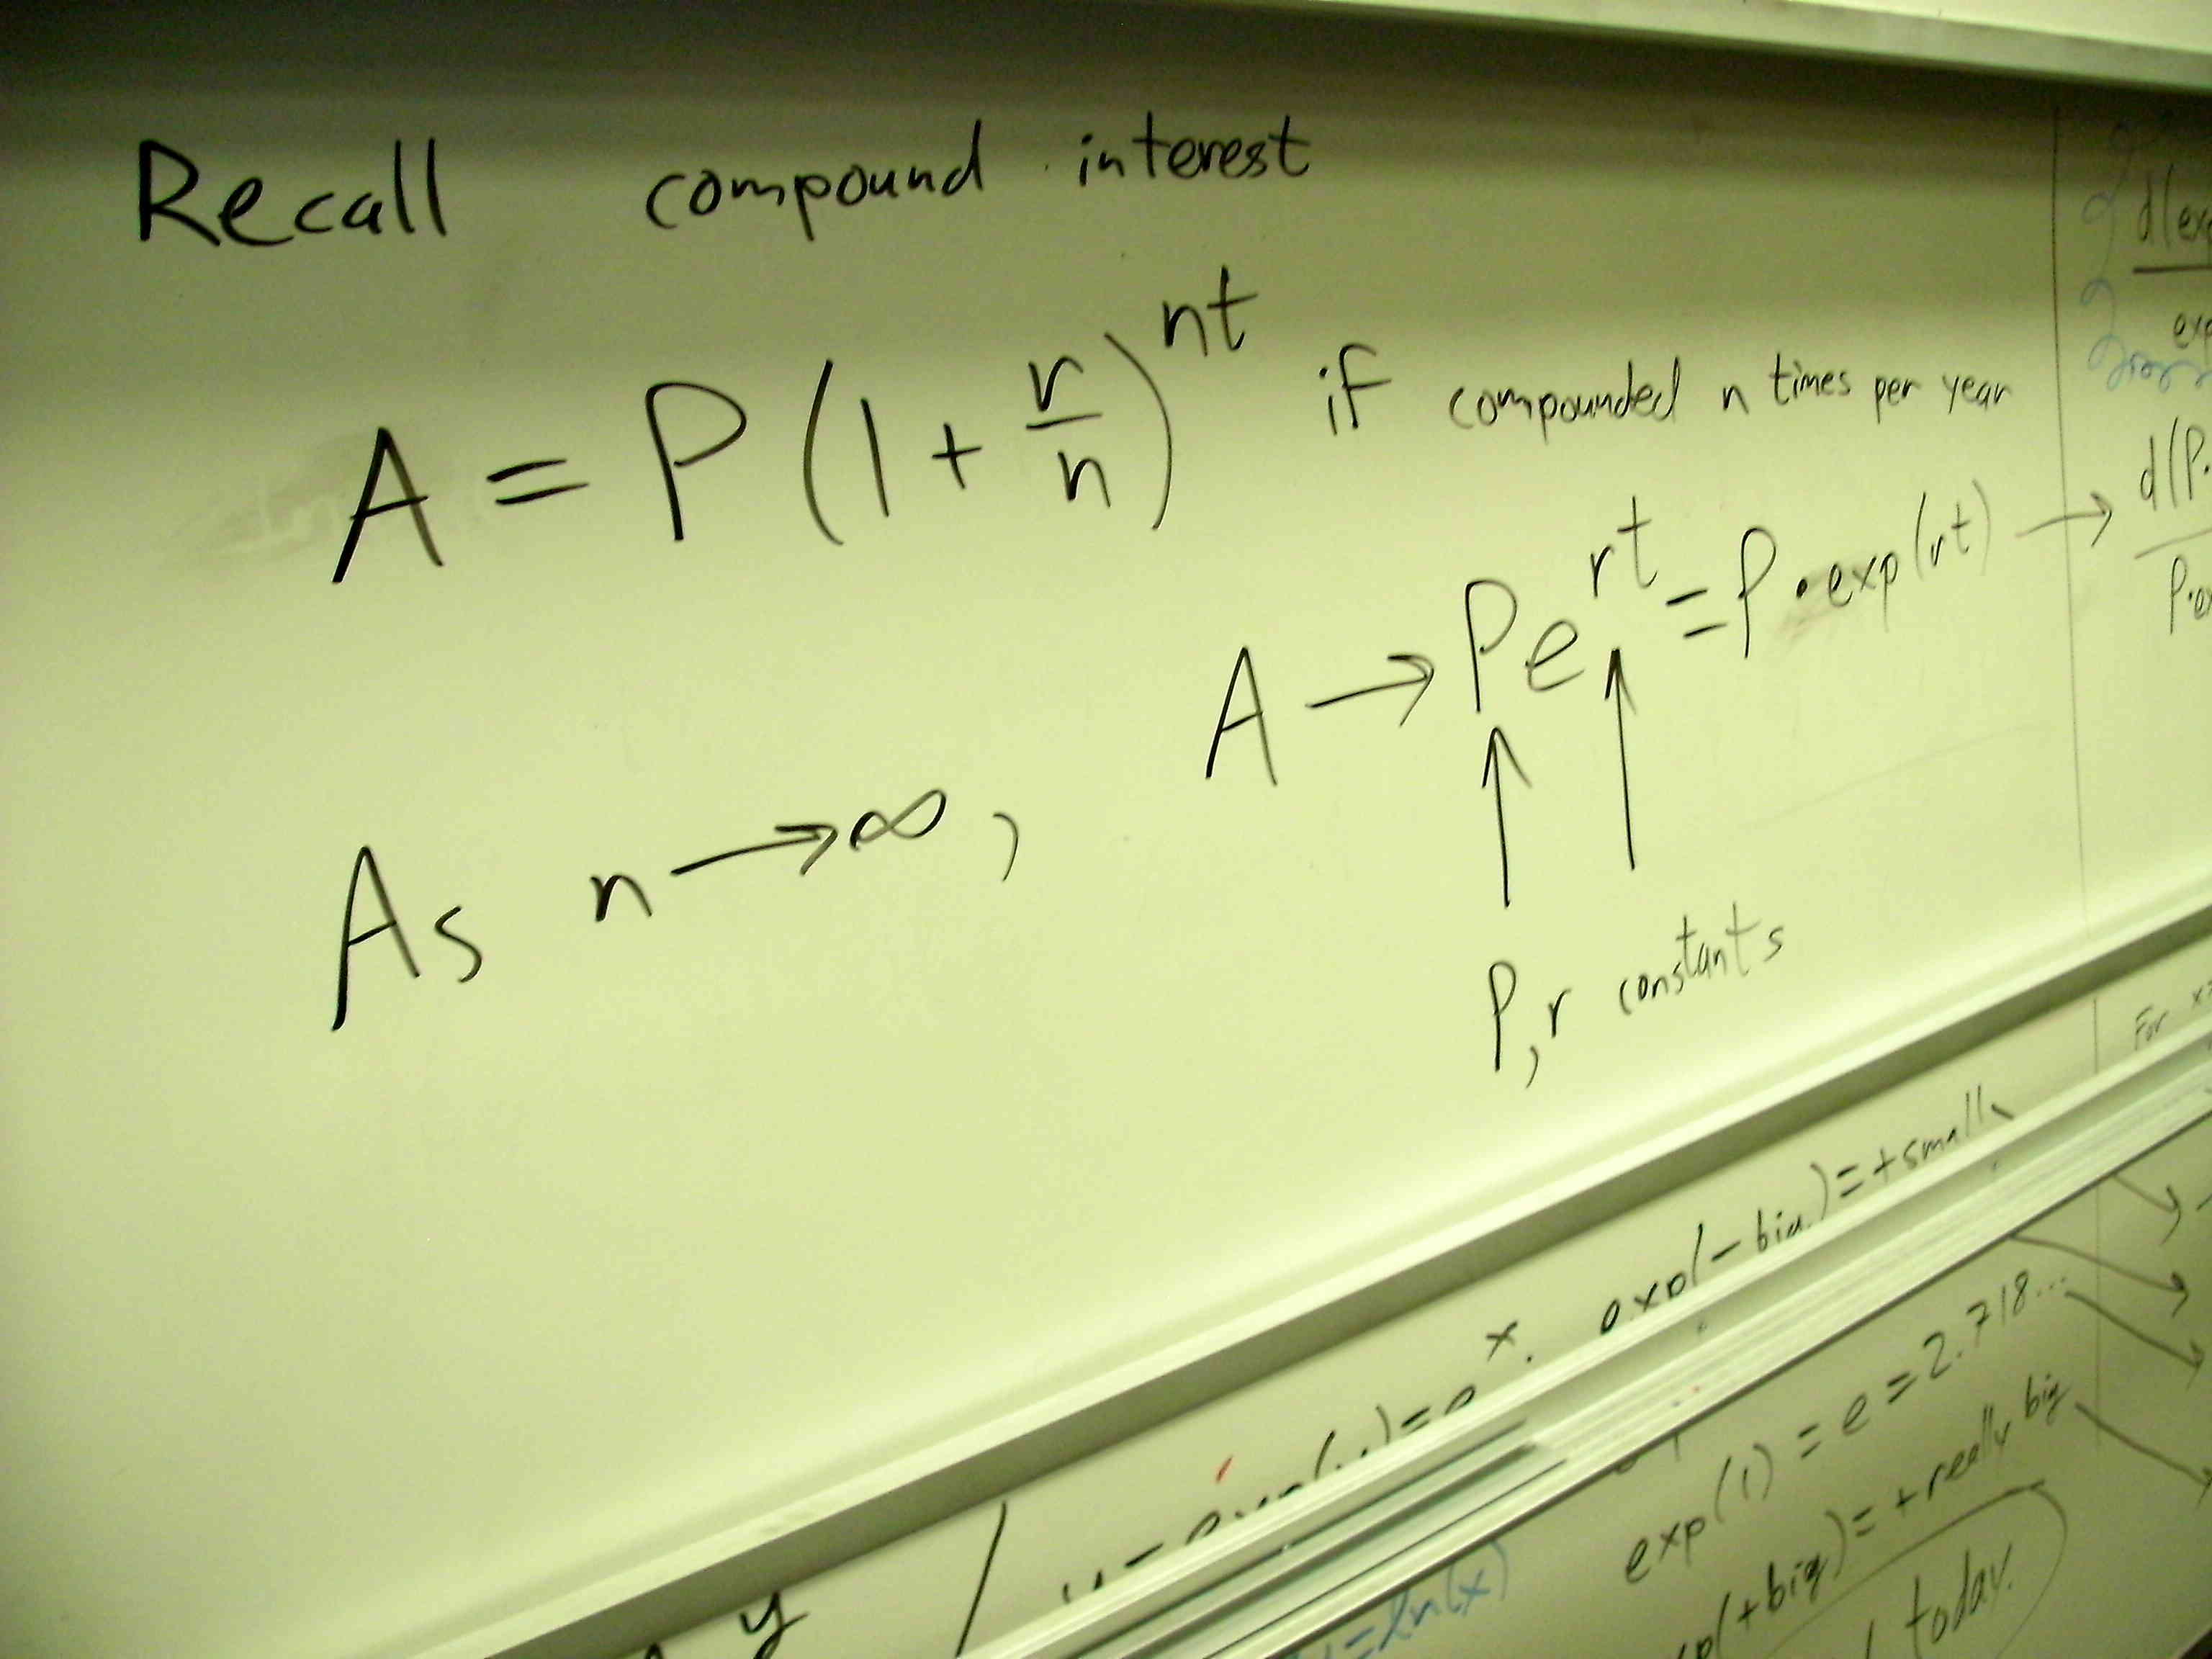 Recall compound interest
A = P(1 + r/n)^nt if compounded n times per year
As n → ∞, A → Pe^rt = P • exp(rt) →
P, r constants
d(exp
exp
d(P•
P•ex
For x
y = exp(x) = e^x. exp(-big) = +small
y
exp(1) = e = 2.718...
xp(+big) = +really big
= ln(x)
today.